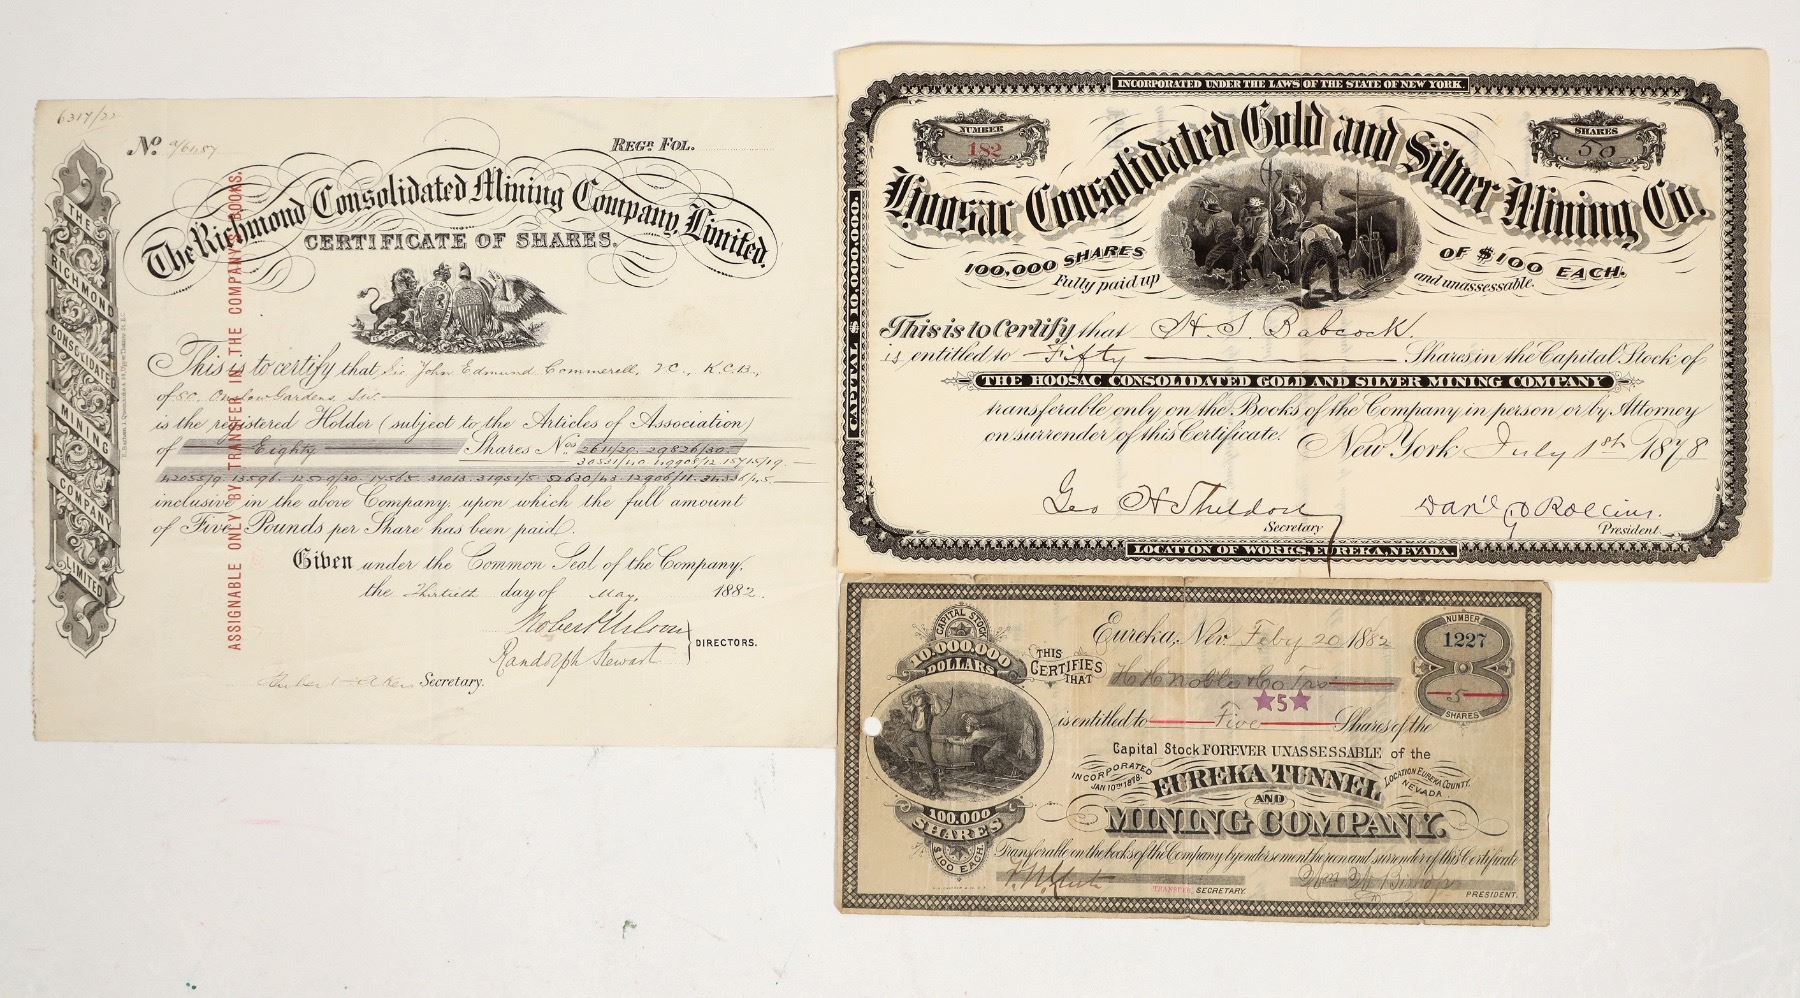 6317/22
No.
REGR. FOL.
The Richmond Consolidated Mining Company, Limited.
CERTIFICATE OF SHARES.
THE RICHMOND CONSOLIDATED MINING COMPANY LIMITED
ASSIGNABLE ONLY BY TRANSFER IN THE COMPANY'S BOOKS.
This is to certify that Sir John Edmund Commerell, V.C., K.C.B.,
of 80. Onslow Gardens, S.W.
is the registered Holder (subject to the Articles of Association)
of Eighty Shares Nos. 2611/20. 29826/30.
30531/40. 49908/12. 15715/19.
42055/9. 13596. 12509/30. 17565. 31013. 31951/5. 52630/43. 12906/11. 34336/45.
inclusive in the above Company, upon which the full amount
of Five Pounds per Share has been paid.
Given under the Common Seal of the Company,
the Thirtieth day of May, 1882.
Randolph Stewart
DIRECTORS.
Secretary.
INCORPORATED UNDER THE LAWS OF THE STATE OF NEW YORK.
NUMBER
182
SHARES
50
Hoosac Consolidated Gold and Silver Mining Co.
100,000 SHARES OF $100 EACH.
Fully paid up and unassessable.
CAPITAL $10,000,000.
This is to Certify that H. S. Babcock
is entitled to Fifty Shares in the Capital Stock of
THE HOOSAC CONSOLIDATED GOLD AND SILVER MINING COMPANY
transferable only on the Books of the Company in person or by Attorney
on surrender of this Certificate. New York July 1st 1878
Geo H Sheldon Secretary
Dan'l G Rollins. President.
LOCATION OF WORKS, EUREKA, NEVADA.
CAPITAL STOCK
10,000,000
DOLLARS
Eureka, Nev. Feby 20 1882
NUMBER
1227
THIS CERTIFIES THAT H H Noble & Co Trs
5
SHARES
★5★
is entitled to Five Shares of the
Capital Stock FOREVER UNASSESSABLE of the
INCORPORATED JAN 10TH 1878.
EUREKA TUNNEL
LOCATION EUREKA COUNTY, NEVADA
AND
MINING COMPANY.
100,000
SHARES
$100 EACH.
Transferable on the books of the Company by endorsement hereon and surrender of this Certificate
TRANSFER SECRETARY.
Wm W Bishop
PRESIDENT.